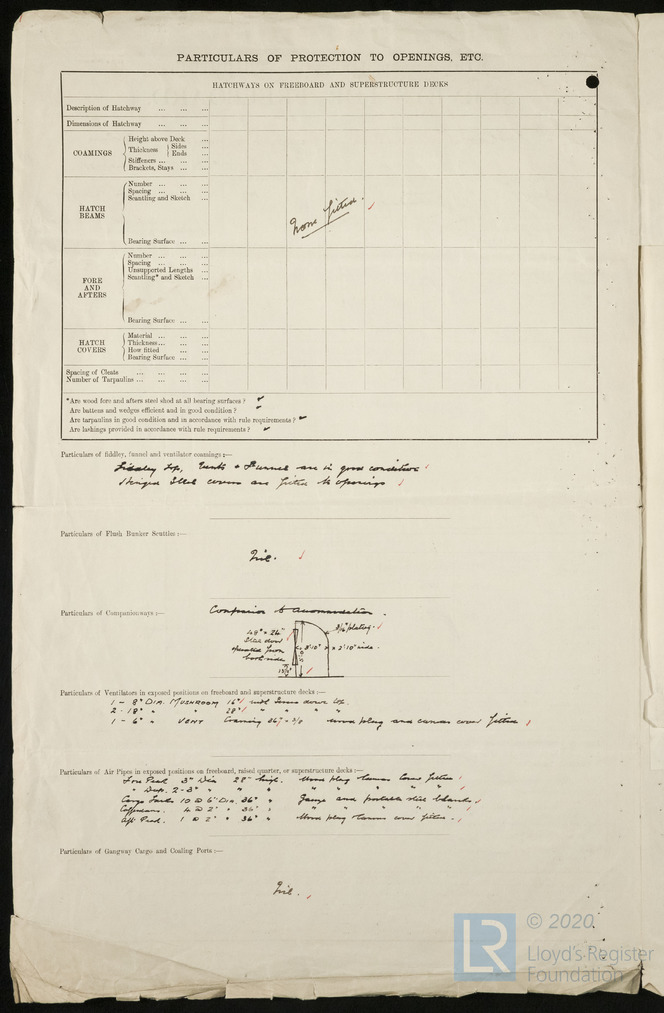 PARTICULARS OF PROTECTION TO OPENINGS, ETC.
HATCHWAYS ON FREEBOARD AND SUPERSTRUCTURE DECKS
Description of Hatchway ... ... ...
Dimensions of Hatchway ... ... ...
COAMINGS
Height above Deck ...
Thickness { Sides ...
Ends ...
Stiffeners ... ... ...
Brackets, Stays ... ...
HATCH BEAMS
Number ... ... ...
Spacing ... ... ...
Scantling and Sketch ...
Bearing Surface ... ...
None fitted.
FORE AND AFTERS
Number ... ... ...
Spacing ... ... ...
Unsupported Lengths ...
Scantling* and Sketch ...
Bearing Surface ... ...
HATCH COVERS
Material ... ... ...
Thickness ... ... ...
How fitted ... ...
Bearing Surface ... ...
Spacing of Cleats ... ... ... ...
Number of Tarpaulins ... ... ... ...
*Are wood fore and afters steel shod at all bearing surfaces ?
Are battens and wedges efficient and in good condition ?
Are tarpaulins in good condition and in accordance with rule requirements ?
Are lashings provided in accordance with rule requirements ?
Particulars of fiddley, funnel and ventilator coamings :—
Fiddley top, Vents & Funnel are in good condition
Hinged steel covers are fitted to openings
Particulars of Flush Bunker Scuttles :—
Nil.
Particulars of Companionways :—
Companion to accommodation.
48" × 24"
Steel door
operated from
both sides
3/16 plating.
3'10" × 2'10" wide.
Particulars of Ventilators in exposed positions on freeboard and superstructure decks :—
1 - 8" DIA. MUSHROOM 16" with screw down top.
2 - 18" " " 28" " " " "
1 - 6" " VENT Coaming 36" × 3/8 wood plug and canvas cover fitted
Particulars of Air Pipes in exposed positions on freeboard, raised quarter, or superstructure decks :—
Fore Peak 3" Dia 28" high. Wood plug canvas cover fitted
" Deep. 2-3" " " " " " " " "
Cargo Tanks 10 @ 6" Dia. 36" " Gauze and portable steel blanks
Cofferdams. 4 @ 2" " 36" " " " " " "
Aft Peak. 1 @ 2" " 36" " Wood plug canvas cover fitted.
Particulars of Gangway Cargo and Coaling Ports :—
Nil.
LR
© 2020
Lloyd's Register
Foundation